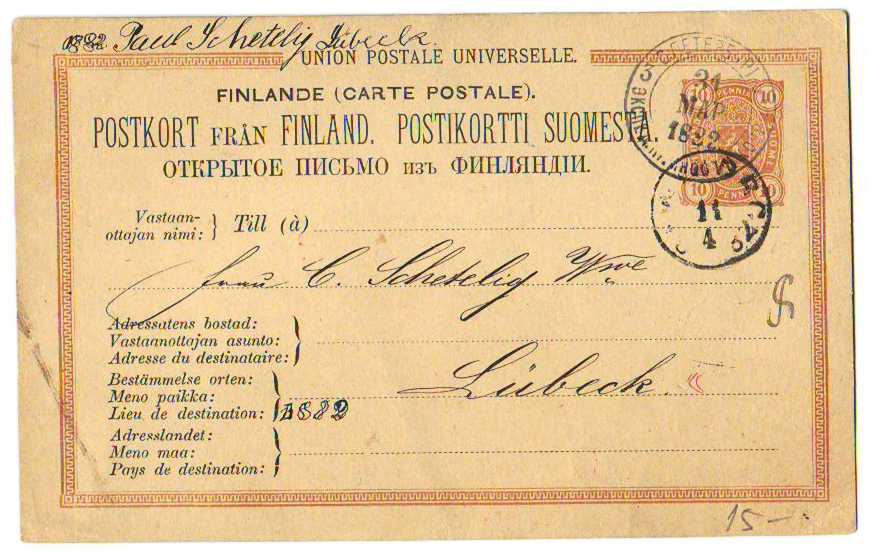 1882 Paul Schetelig Lübeck.
UNION POSTALE UNIVERSELLE.
FINLANDE (CARTE POSTALE).
POSTKORT FRÅN FINLAND. POSTIKORTTI SUOMESTA.
ОТКРЫТОЕ ПИСЬМО изъ ФИНЛЯНДІИ.
10 PENNIÄ 10
31
МАР.
1882
10 PENNIA 10
11
4
82
Vastaan-
ottajan nimi: } Till (à)
Frau C. Schetelig Wwe
Adressatens bostad:
Vastaanottajan asunto:
Adresse du destinataire:
Lübeck.
Bestämmelse orten:
Meno paikka:
Lieu de destination: 1882
Adresslandet:
Meno maa:
Pays de destination:
15 —